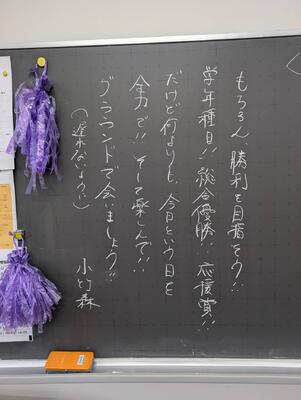 もちろん、勝利を目指そう!!
学年種目!! 総合優勝!! 応援賞!!
だけど何よりも、今日という日を
全力で!! そして楽しんで!!
グラウンドで会いましょう!!
(遅れないように)
小竹森